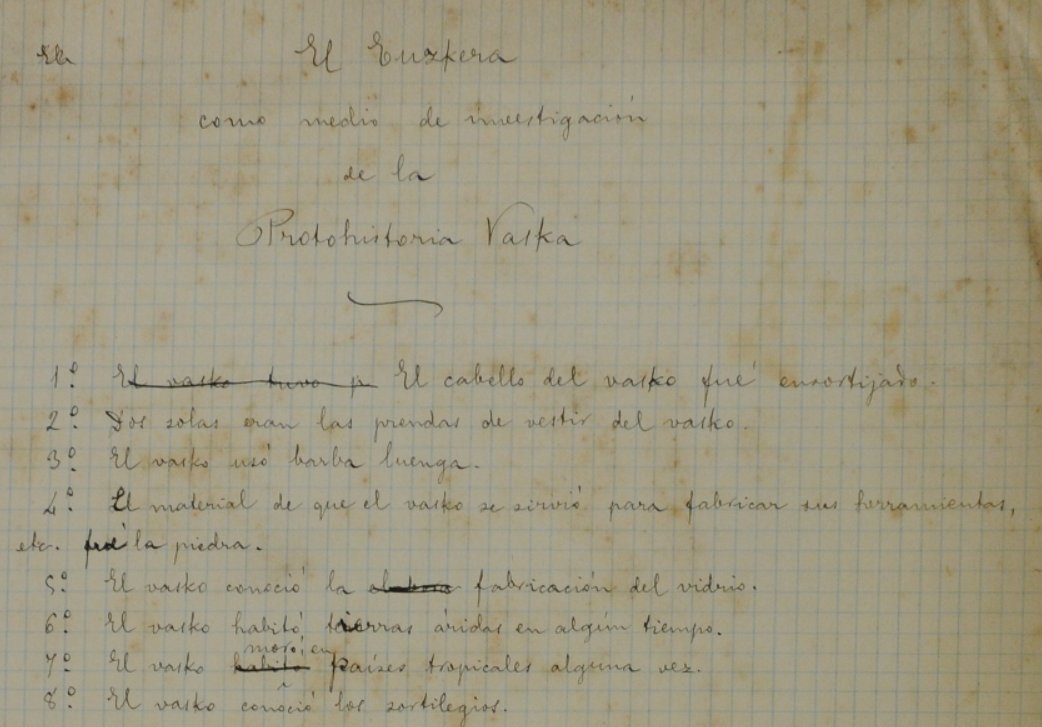 El Euzkera
como medio de investigación
de la
Protohistoria Vaska
1º El vasko tuvo p El cabello del vasko fué ensortijado.
2º Dos solas eran las prendas de vestir del vasko.
3º El vasko usó barba luenga.
4º El material de que el vasko se sirvió para fabricar sus herramientas,
etc. fué la piedra.
5º El vasko conoció la fabricación del vidrio.
6º El vasko habitó tierras áridas en algún tiempo.
moró, en
7º El vasko habitó países tropicales alguna vez.
8º El vasko conoció los sortilegios.